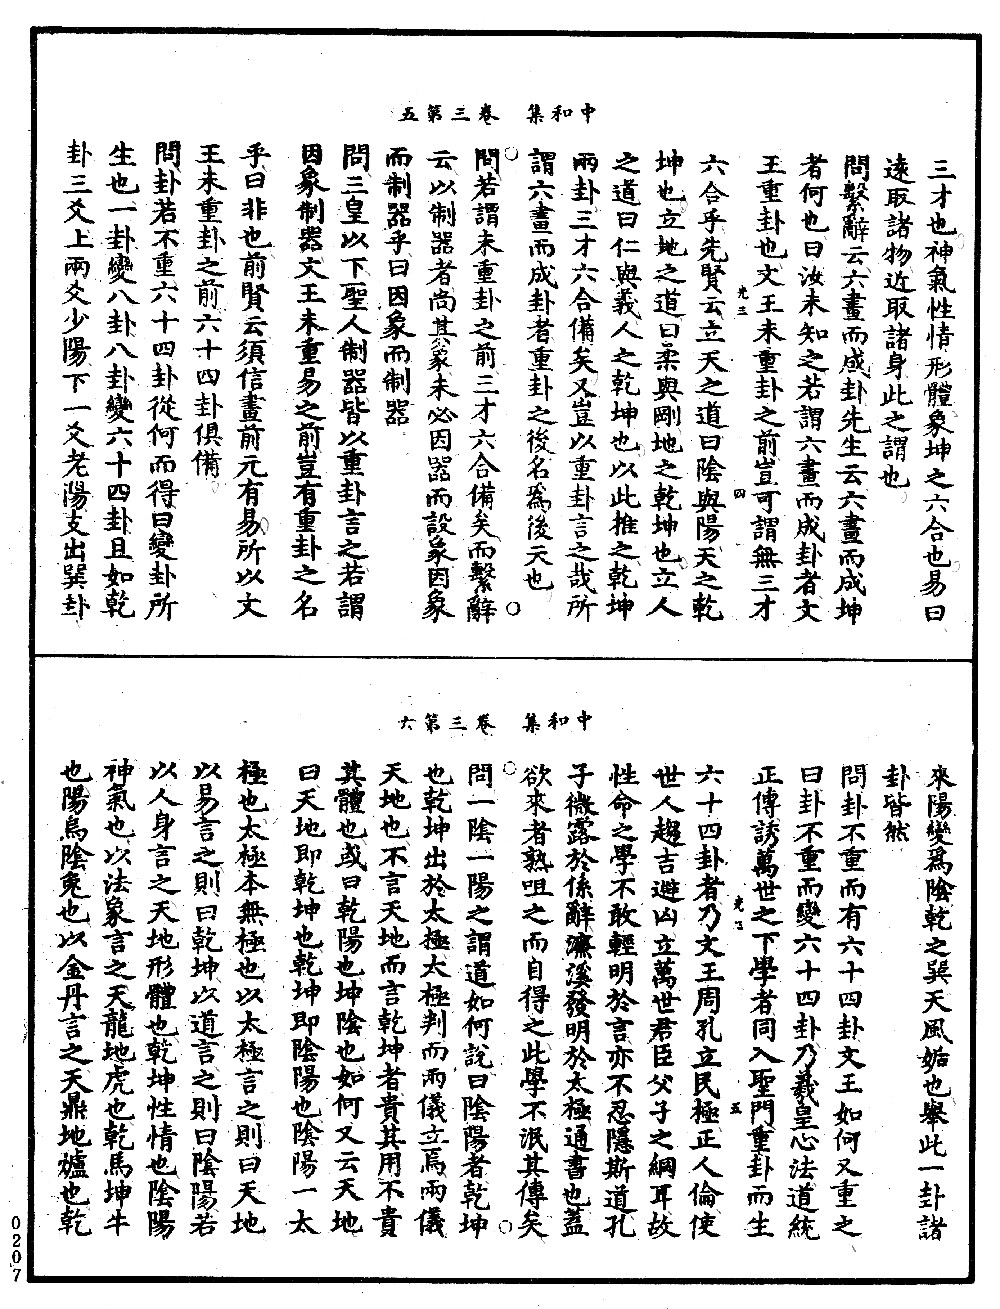 中和集　卷三第五
三才也神氣性情形體象坤之六合也易曰
遠取諸物近取諸身此之謂也
問繫辭云六畫而成卦先生云六畫而成坤
者何也曰汝未知之若謂六畫而成卦者文
王重卦也文王未重卦之前豈可謂無三才
光三　四
六合乎先賢云立天之道曰陰與陽天之乾
坤也立地之道曰柔與剛地之乾坤也立人
之道曰仁與義人之乾坤也以此推之乾坤
兩卦三才六合備矣又豈以重卦言之哉所
謂六畫而成卦者重卦之後名爲後天也
問若謂未重卦之前三才六合備矣而繫辭
云以制器者尚其象未必因器而設象因象
而制器乎曰因象而制器
問三皇以下聖人制器皆以重卦言之若謂
因象制器文王未重易之前豈有重卦之名
乎曰非也前賢云須信畫前元有易所以文
王未重卦之前六十四卦俱備
問卦若不重六十四卦從何而得曰變卦所
生也一卦變八卦八卦變六十四卦且如乾
卦三爻上兩爻少陽下一爻老陽支出巽卦
中和集　卷三第六
來陽變爲陰乾之巽天風姤也舉此一卦諸
卦皆然
問卦不重而有六十四卦文王如何又重之
曰卦不重而變六十四卦乃羲皇心法道統
正傳誘萬世之下學者同入聖門重卦而生
五
六十四卦者乃文王周孔立民極正人倫使
世人趨吉避凶立萬世君臣父子之綱耳故
性命之學不敢輕明於言亦不忍隱斯道孔
子微露於係辭濂溪發明於太極通書也蓋
欲來者熟咀之而自得之此學不泯其傳矣
問一陰一陽之謂道如何說曰陰陽者乾坤
也乾坤出於太極太極判而兩儀立焉兩儀
天地也不言天地而言乾坤者貴其用不貴
其體也或曰乾陽也坤陰也如何又云天地
曰天地即乾坤也乾坤即陰陽也陰陽一太
極也太極本無極也以太極言之則曰天地
以易言之則曰乾坤以道言之則曰陰陽若
以人身言之天地形體也乾坤性情也陰陽
神氣也以法象言之天龍地虎也乾馬坤牛
也陽烏陰兔也以金丹言之天鼎地爐也乾
0207